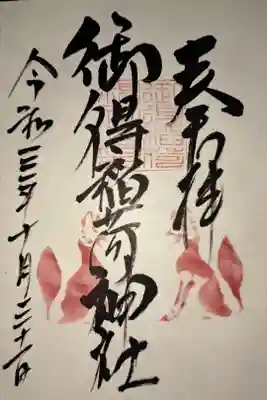 奉拝
御得稲荷神社
令和三年十月三十一日